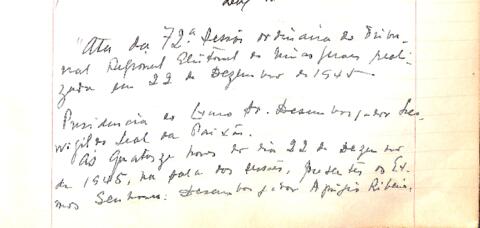 "Ata da 72ª sessão ordinária do Tribu-
nal Regional Eleitoral de Minas Gerais reali-
zada em 22 de Dezembro de 1945.
Presidencia do Exmo Sr. Desembargador
Leal da Paixão.
Às quatorze horas do dia 22 de Dezembro
de 1945, na sala das sessões, presentes os Ex-
mos Senhores: Desembargador Aprígio Ribeiro,